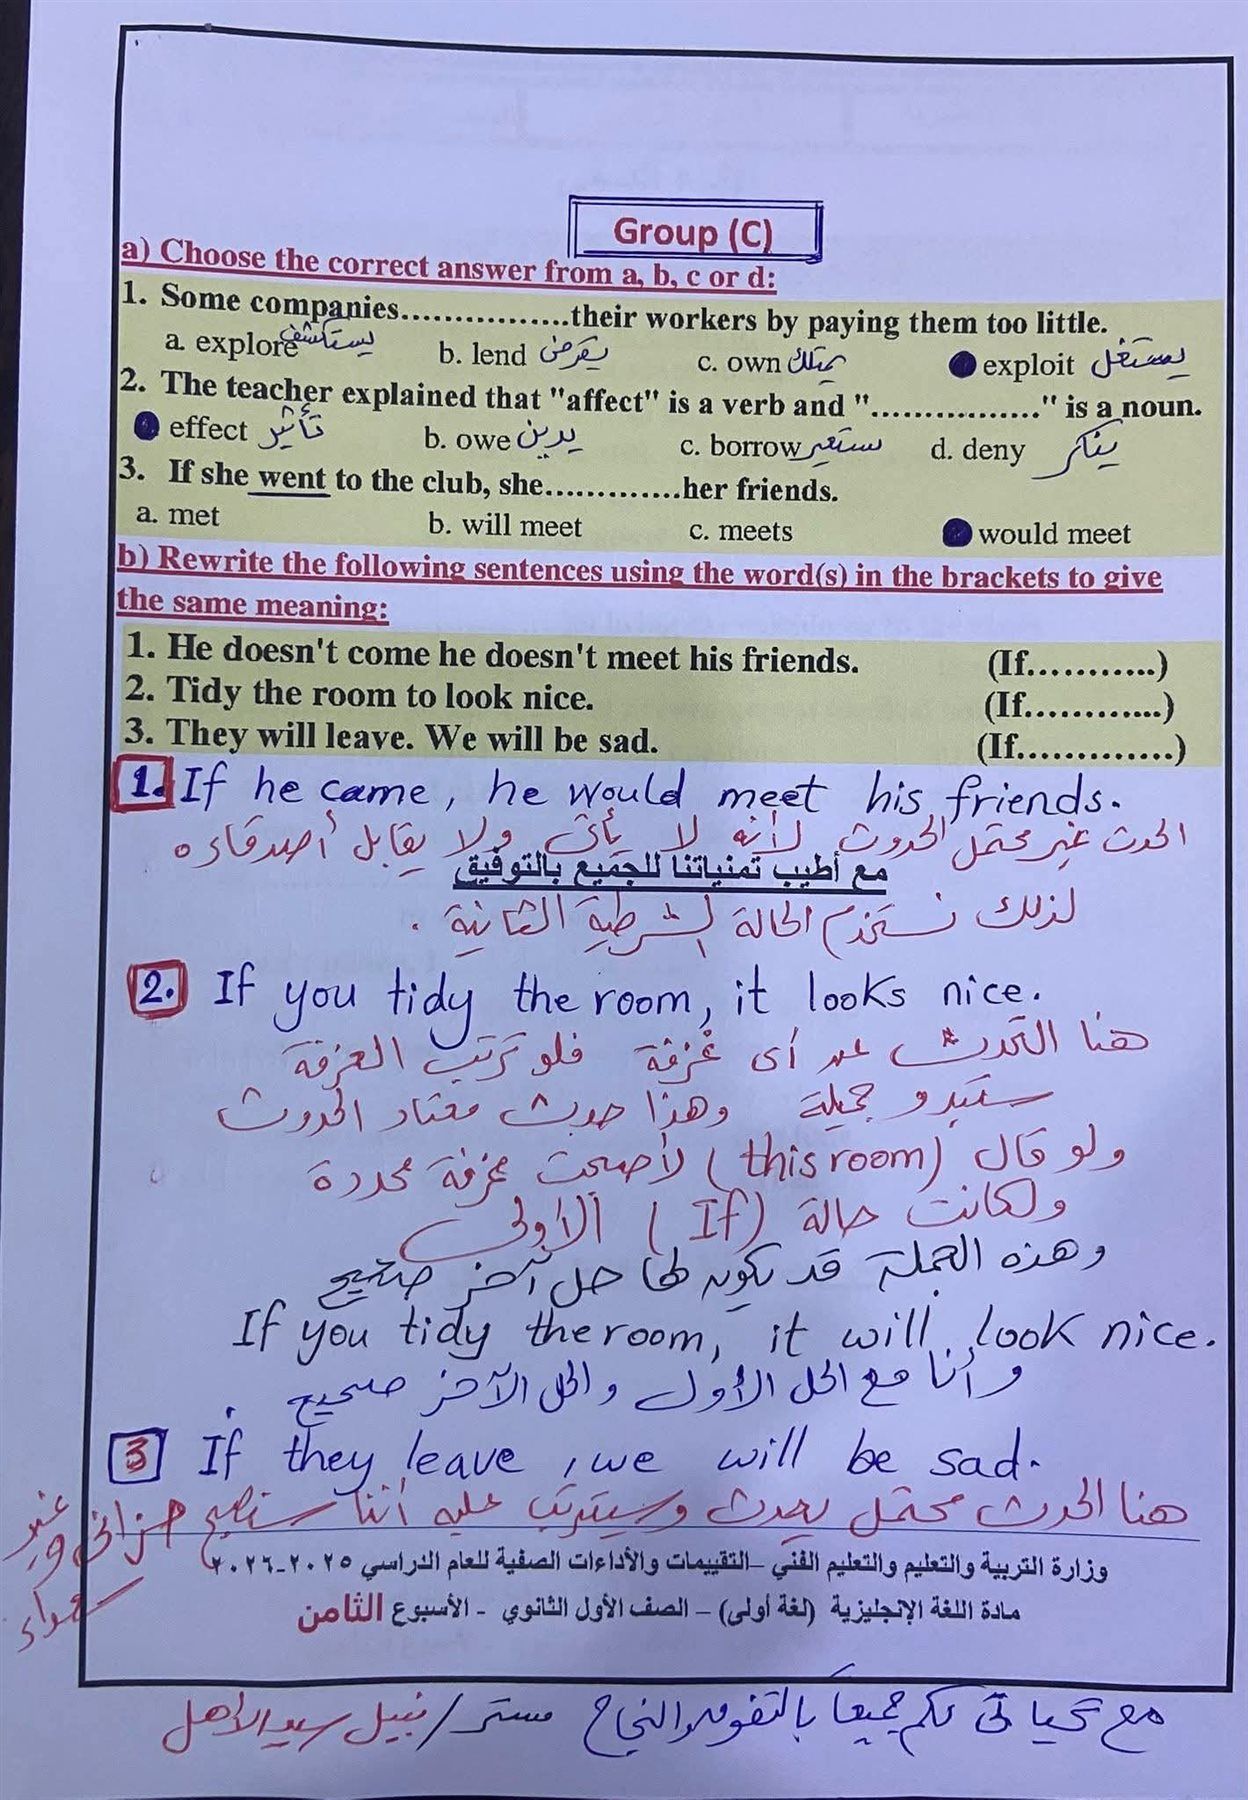 Group (C)
a) Choose the correct answer from a, b, c or d:
1. Some companies................their workers by paying them too little.
a. explore يستكشف b. lend يقرض c. own يمتلك exploit يستغل
2. The teacher explained that "affect" is a verb and "................" is a noun.
effect تأثير b. owe يدين c. borrow يستعير d. deny ينكر
3. If she went to the club, she.............her friends.
a. met b. will meet c. meets would meet
b) Rewrite the following sentences using the word(s) in the brackets to give
the same meaning:
1. He doesn't come he doesn't meet his friends. (If...........)
2. Tidy the room to look nice. (If............)
3. They will leave. We will be sad. (If.............)
1. If he came, he would meet his friends.
الحدث غير محتمل الحدوث لأنه لا يأتى ولا يقابل أصدقاءه
مع أطيب تمنياتنا للجميع بالتوفيق
لذلك نستخدم الحالة الشرطية الثانية .
2. If you tidy the room, it looks nice.
هنا التحدث عن أى غرفة فلو ترتب الغرفة
ستبدو جميلة وهذا حدث معتاد الحدوث
ولو قال (this room) لأصبحت غرفة محددة
ولكانت حالة (If) الأولى
وهذه الجملة قد يكون لها حل آخر صحيح
If you tidy the room, it will look nice.
وأنا مع الحل الأول والحل الآخر صحيح .
3 If they leave, we will be sad.
هنا الحدث محتمل يحدث وسيترتب عليه أننا سنصبح حزانى وغير
سعداء
وزارة التربية والتعليم والتعليم الفني -التقييمات والأداءات الصفية للعام الدراسي ٢٠٢٥-٢٠٢٦
مادة اللغة الإنجليزية (لغة أولى) - الصف الأول الثانوي - الأسبوع الثامن
مع تحياتى لكم جميعاً بالتفوق والنجاح مستر/ نبيل سيد الأهل